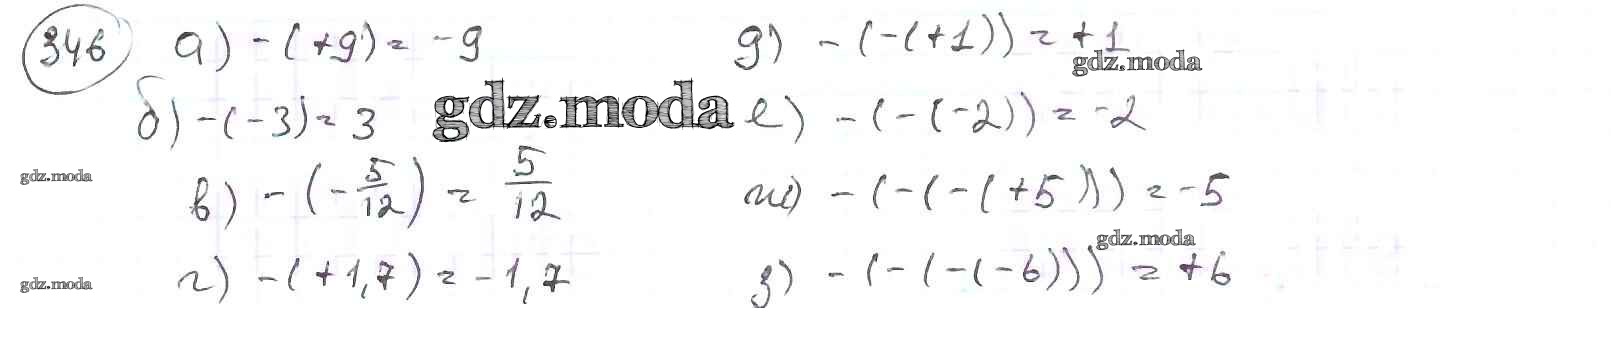 346 а) -(+9) = -9
б) -(-3) = 3
в) -(-5/12) = 5/12
г) -(+1,7) = -1,7
д) -(-(+1)) = +1
е) -(-(-2)) = -2
ж) -(-(-(+5))) = -5
з) -(-(-(-6))) = +6
gdz.moda
gdz.moda
gdz.moda
gdz.moda
gdz.moda